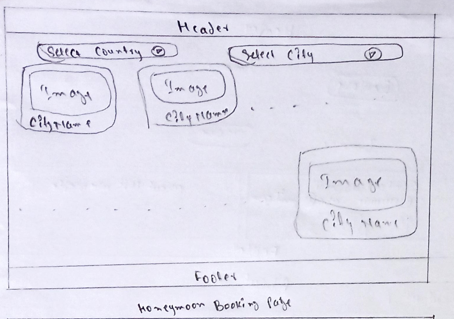 Header
Select Country
Select City
Image
City Name
Image
City Name
Image
City Name
Footer
Honeymoon Booking Page